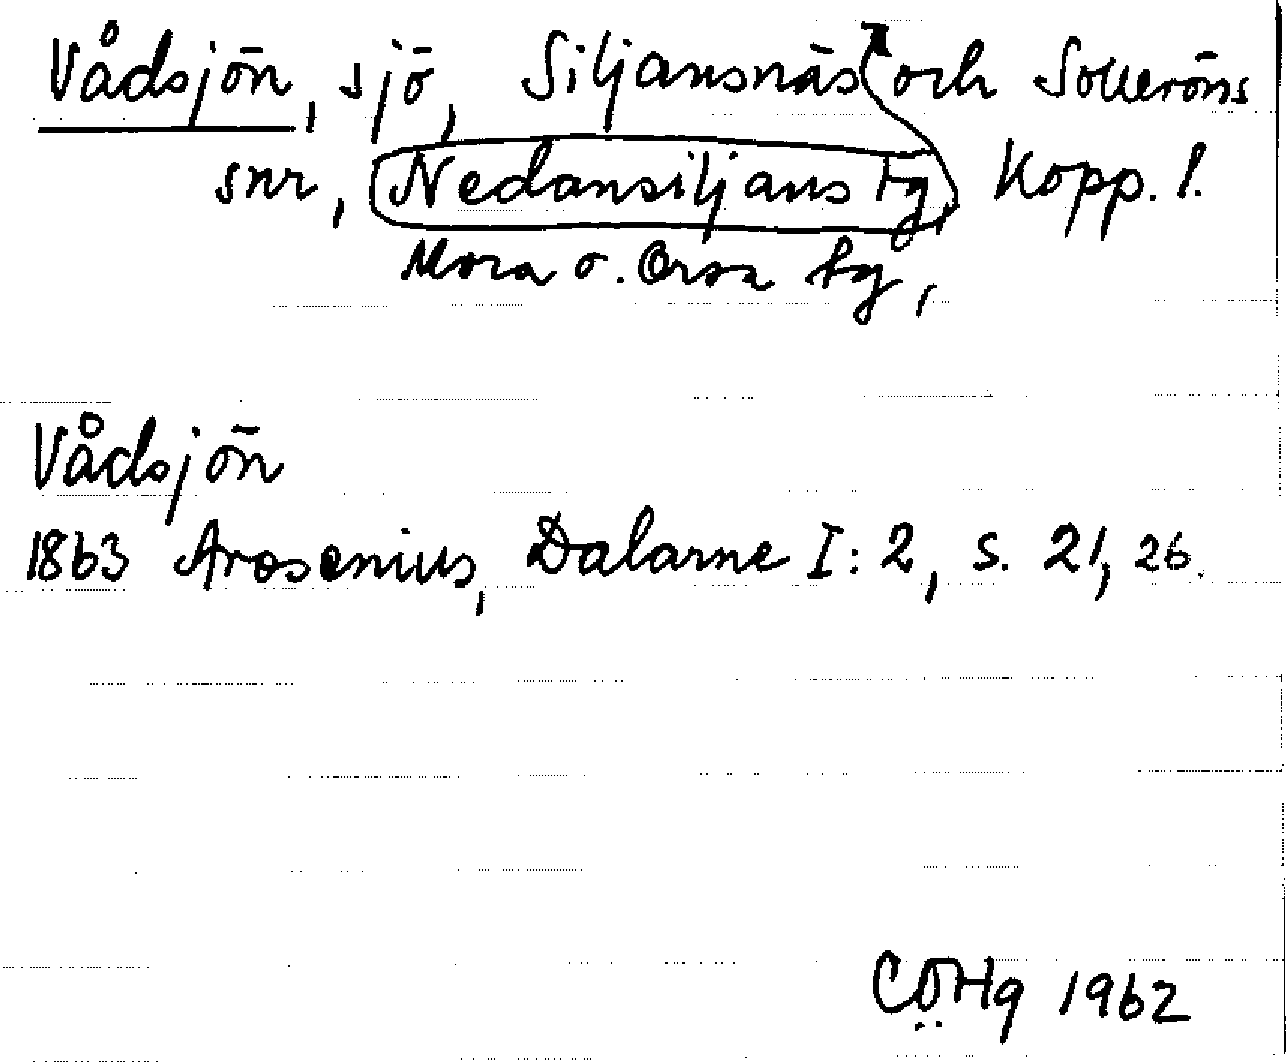 Vådsjön, sjö, Siljansnäs och Solleröns
snr, Nedansiljans tg, Kopp. l.
Mora o. Orsa tg,
Vådsjön
1863 Arosenius, Dalarne I: 2, s. 21, 26.
CÖHg 1962